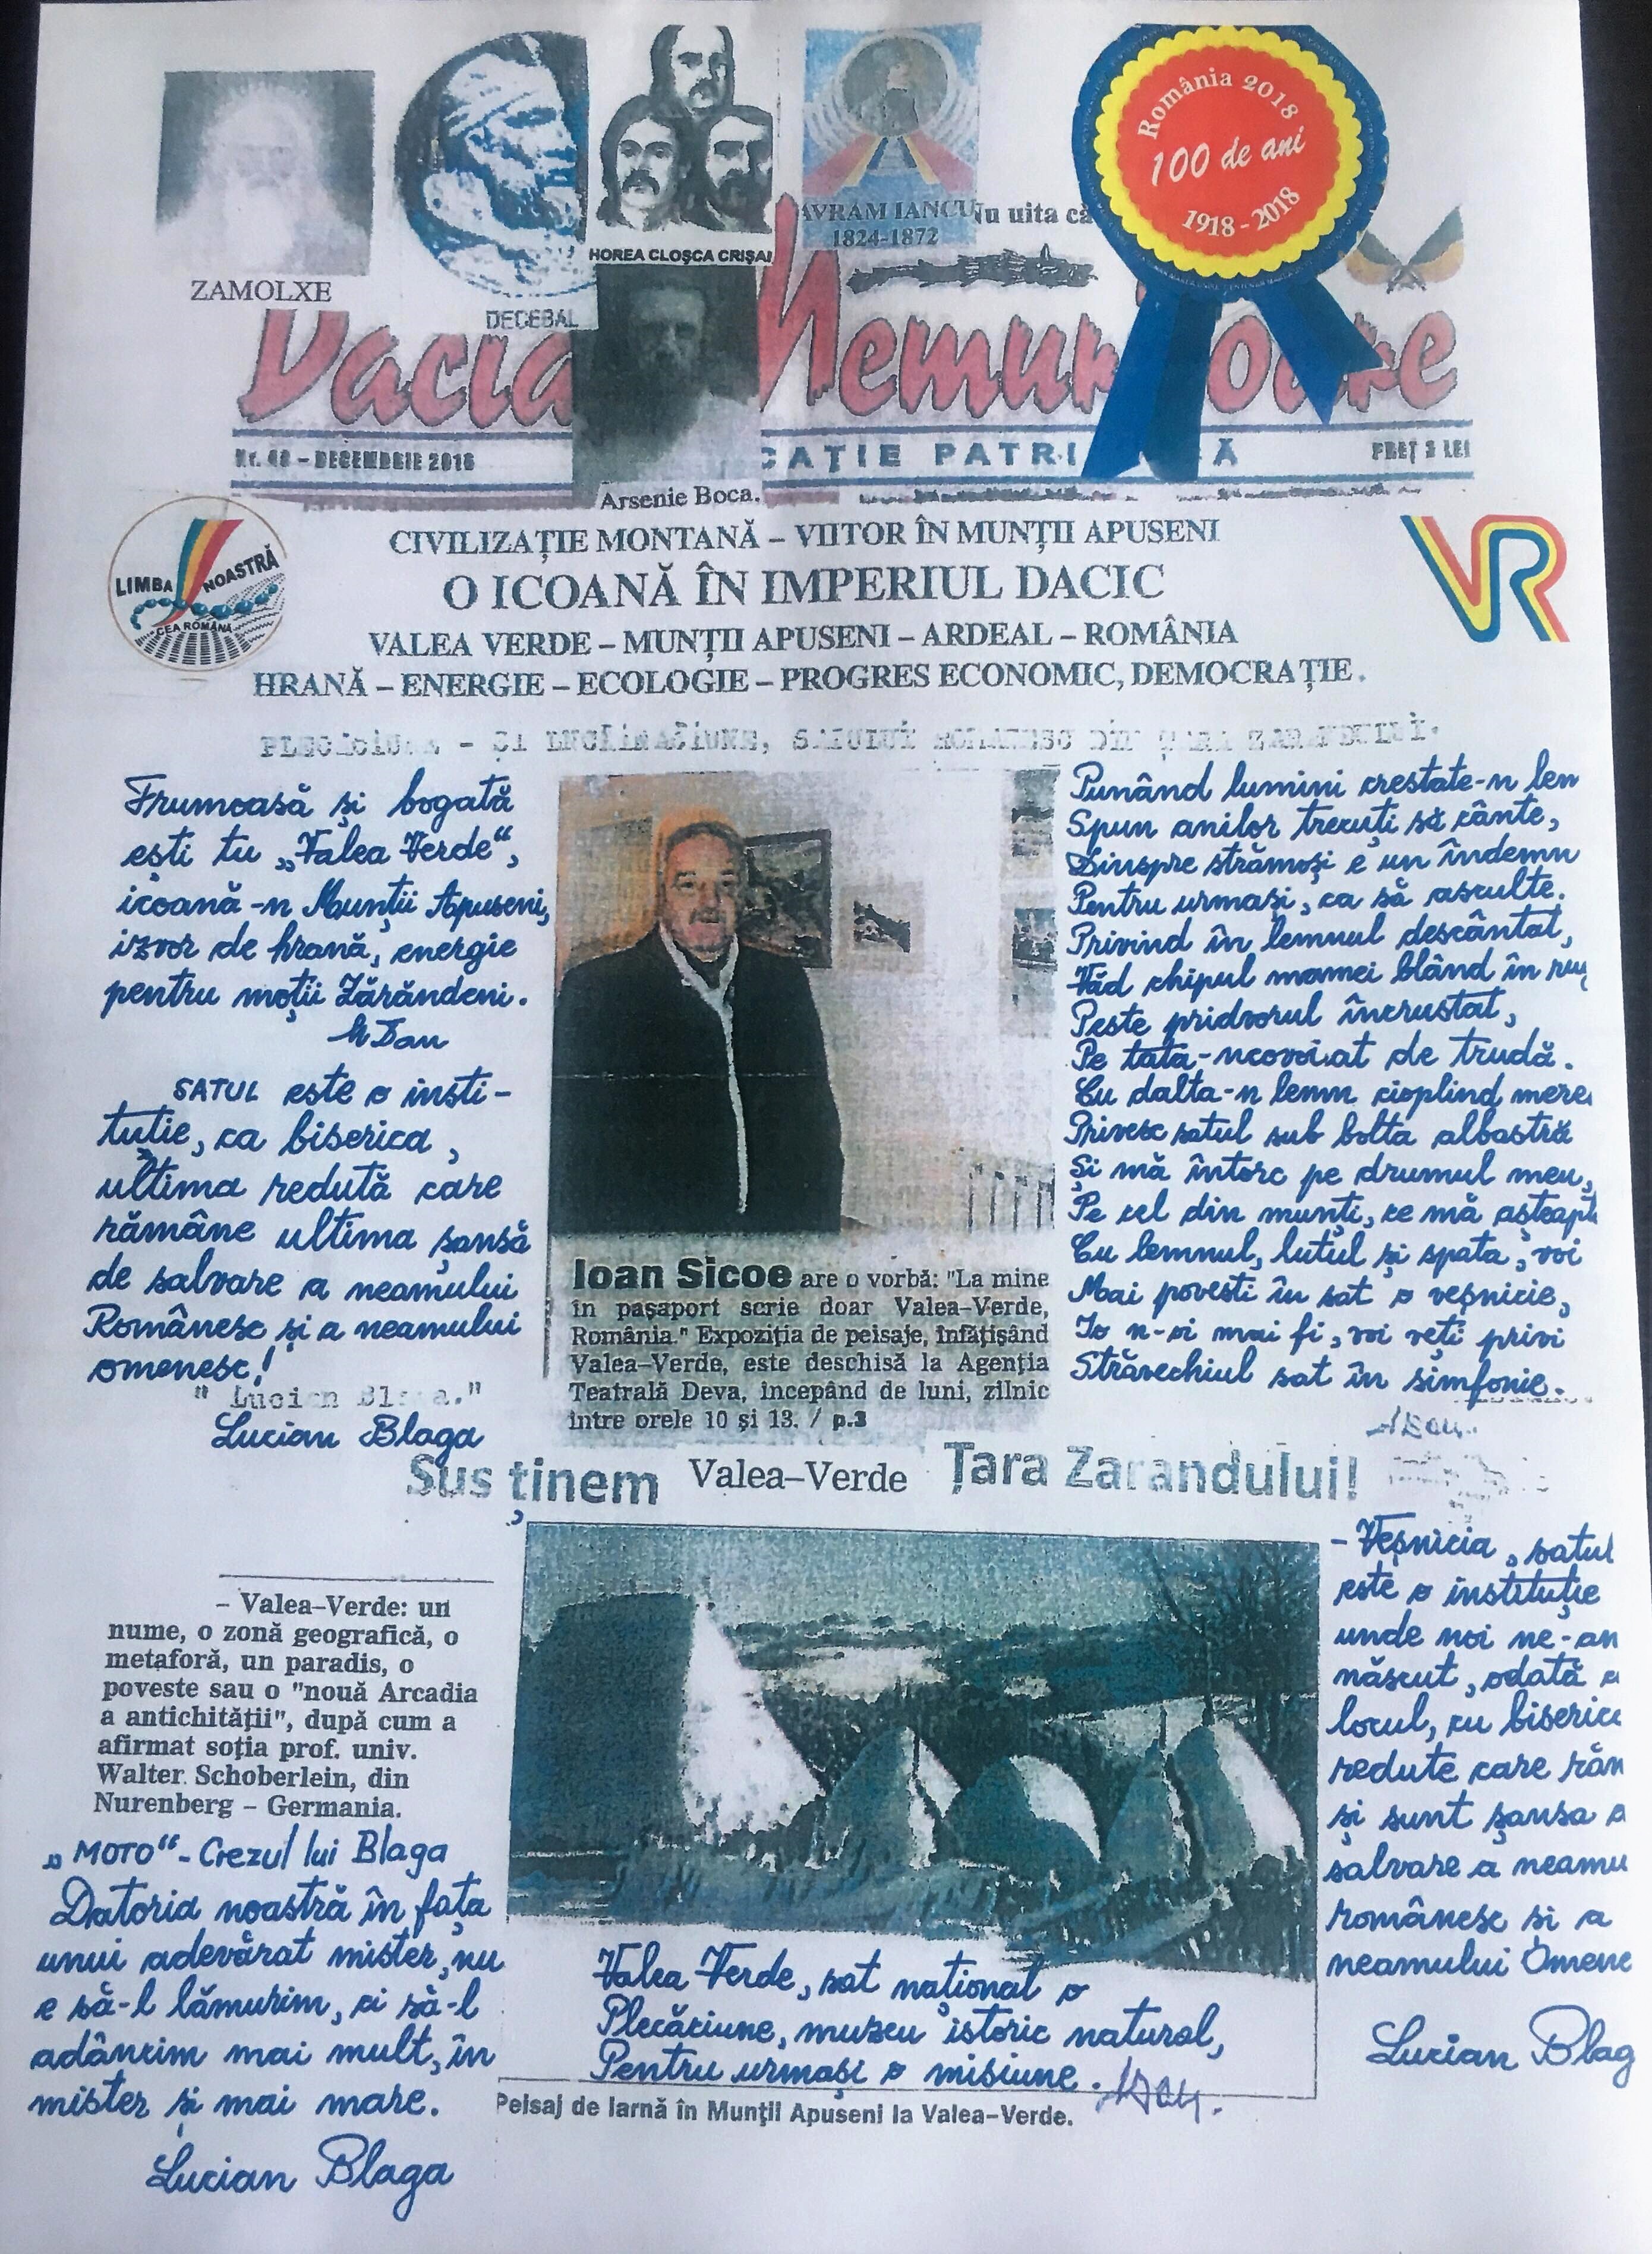 România 2018
100 de ani
1918 - 2018
AVRAM IANCU
1824-1872
Nu uita că
HOREA CLOȘCA CRIȘAN
ZAMOLXE
DECEBAL
Dacia Nemuritoare
Nr. 48 – DECEMBRIE 2018
CAȚIE PATRI Ă
PREȚ 3 LEI
Arsenie Boca.
LIMBA NOASTRĂ
CEA ROMÂNĂ
VR
CIVILIZAȚIE MONTANĂ – VIITOR ÎN MUNȚII APUSENI
O ICOANĂ ÎN IMPERIUL DACIC
VALEA VERDE – MUNȚII APUSENI – ARDEAL – ROMÂNIA
HRANĂ – ENERGIE – ECOLOGIE – PROGRES ECONOMIC, DEMOCRAȚIE.
Frumoasă și bogată
ești tu „Valea Verde“,
icoană-n Munții Apuseni,
izvor de hrană, energie
pentru moții Zărăndeni.
SATUL este o insti-
tuție, ca biserica,
ultima redută care
rămâne ultima șansă
de salvare a neamului
Românesc și a neamului
omenesc!
Lucian Blaga
Ioan Sicoe are o vorbă: "La mine
în pașaport scrie doar Valea-Verde,
România." Expoziția de peisaje, înfățișând
Valea-Verde, este deschisă la Agenția
Teatrală Deva, începând de luni, zilnic
între orele 10 și 13. / p.3
Punând lumini crestate-n lem
Spun anilor trecuți să cânte,
Dinspre strămoși e un îndemn
Pentru urmași, ca să asculte.
Privind în lemnul descântat,
Văd chipul mamei blând în
Peste pridvorul încrustat,
Pe tata-ncovoiat de trudă.
Cu dalta-n lemn cioplind mere
Privesc satul sub bolta albastră
Și mă întorc pe drumul meu,
Pe cel din munți, ce mă așteapt
Cu lemnul, lutul și spata, voi
Mai povesti în sat o veșnicie,
Io n-oi mai fi, voi veți privi
Străvechiul sat în simfonie.
Sus ținem Valea-Verde Țara Zarandului!
– Valea-Verde: un
nume, o zonă geografică, o
metaforă, un paradis, o
poveste sau o "nouă Arcadia
a antichității", după cum a
afirmat soția prof. univ.
Walter Schoberlein, din
Nurenberg – Germania.
„MOTO“ - Crezul lui Blaga
Datoria noastră în fața
unui adevărat mister, nu
e să-l lămurim, ci să-l
adâncim mai mult, în
mister și mai mare.
Lucian Blaga
Valea Verde, sat național o
Plecăciune, muzeu istoric natural,
Pentru urmași o misiune.
Peisaj de Iarnă în Munții Apuseni la Valea-Verde.
- Veșnicia, satul
este o instituție
unde noi ne-am
născut, odată c
locul, cu biserica
redute care răm
și sunt șansa a
salvare a neamu
românesc și a
neamului Omene
Lucian Blag